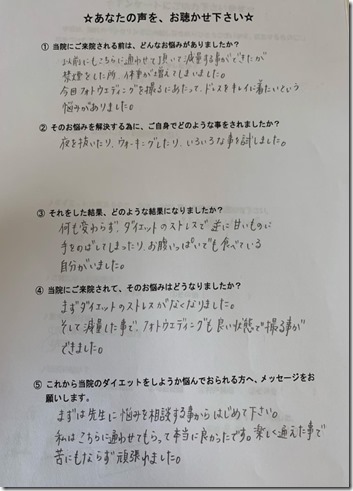 ☆あなたの声を、お聴かせ下さい☆
① 当院にご来院される前は、どんなお悩みがありましたか？
以前にもこちらに通わせて頂いて減量する事ができたが
禁煙をした所、体重が増えてしまいました。
今回フォトウエディングを撮るにあたって、ドレスをキレイに着たいという
悩みがありました。
② そのお悩みを解決する為に、ご自身でどのような事をされましたか？
夜を抜いたり、ウォーキングしたり、いろいろな事を試しました。
③ それをした結果、どのような結果になりましたか？
何も変わらず、ダイエットのストレスで逆に甘いものに
手をのばしてしまったり、お腹いっぱいでも食べている
自分がいました。
④ 当院にご来院されて、そのお悩みはどうなりましたか？
まずダイエットのストレスがなくなりました。
そして減量した事で、フォトウエディングも良い状態で撮る事が
できました。
⑤ これから当院のダイエットをしようか悩んでおられる方へ、メッセージをお
願いします。
まずは先生に悩みを相談する事からはじめて下さい。
私はこちらに通わせてもらって本当に良かったです。楽しく通えた事で
苦にもならず頑張れました。